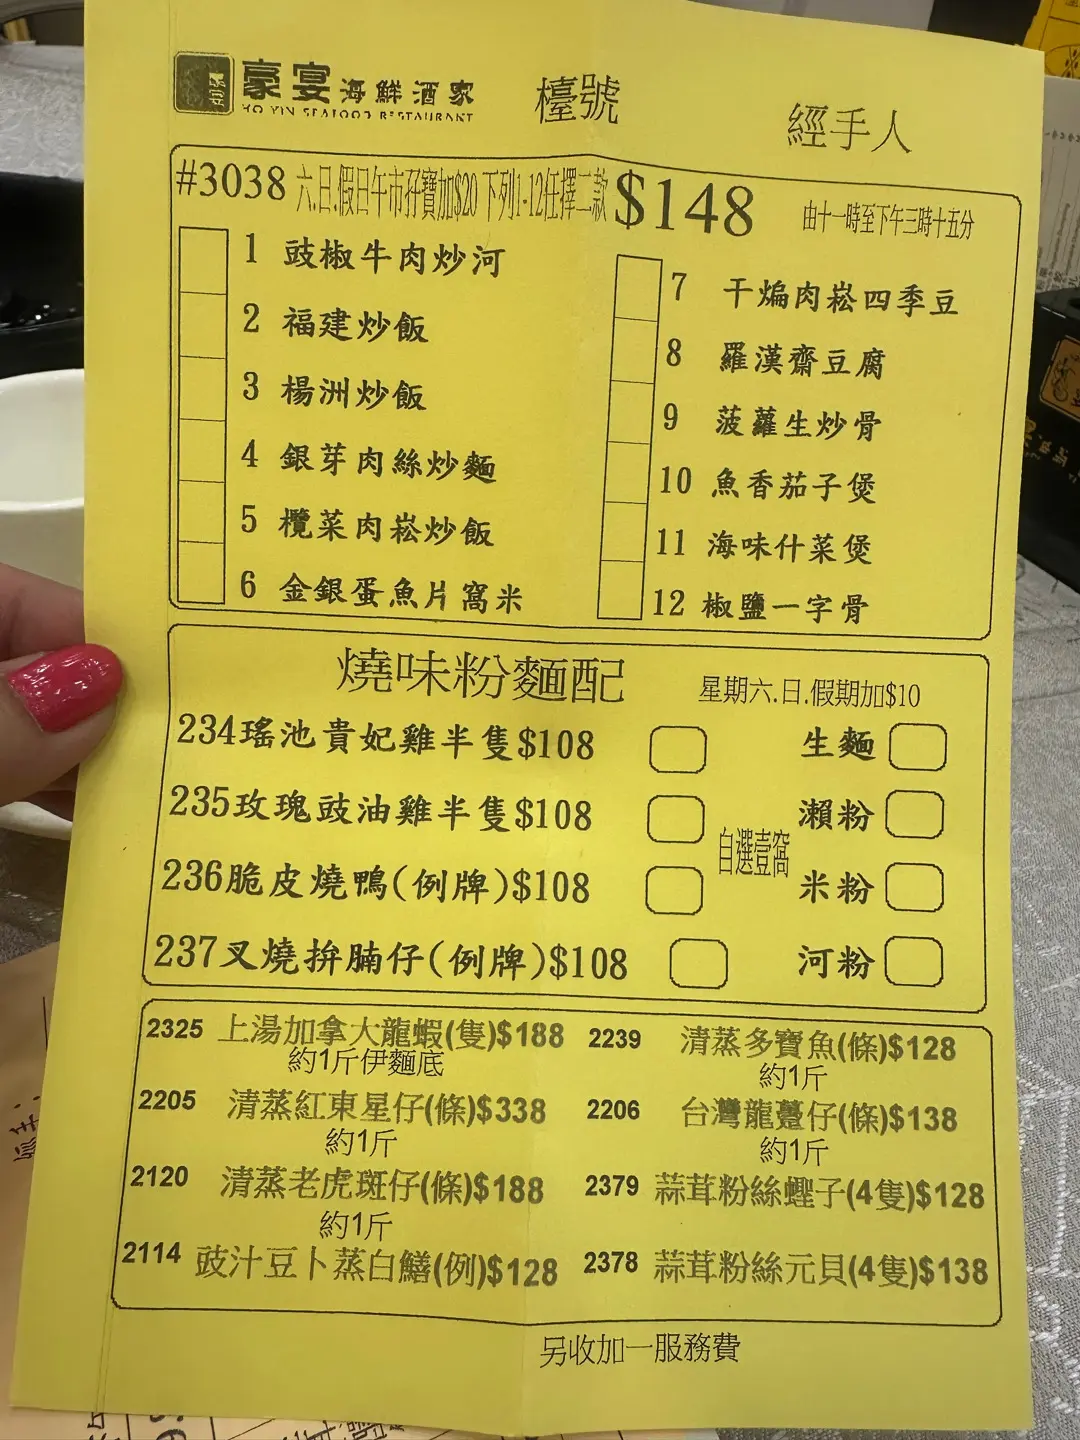 豪宴海鮮酒家 檯號 經手人
HO YIN SEAFOOD RESTAURANT
#3038 六.日.假日午市孖寶加$20 下列1-12任擇二款 $148 由十一時至下午三時十五分
1 豉椒牛肉炒河
2 福建炒飯
3 楊洲炒飯
4 銀芽肉絲炒麵
5 欖菜肉崧炒飯
6 金銀蛋魚片窩米
7 干煸肉崧四季豆
8 羅漢齋豆腐
9 菠蘿生炒骨
10 魚香茄子煲
11 海味什菜煲
12 椒鹽一字骨
燒味粉麵配 星期六.日.假期加$10
234瑤池貴妃雞半隻$108
235玫瑰豉油雞半隻$108
236脆皮燒鴨(例牌)$108
237叉燒拚腩仔(例牌)$108
自選壹窩
生麵
瀨粉
米粉
河粉
2325 上湯加拿大龍蝦(隻)$188
約1斤伊麵底
2205 清蒸紅東星仔(條)$338
約1斤
2120 清蒸老虎斑仔(條)$188
約1斤
2114 豉汁豆卜蒸白鱔(例)$128
2239 清蒸多寶魚(條)$128
約1斤
2206 台灣龍躉仔(條)$138
約1斤
2379 蒜茸粉絲蟶子(4隻)$128
2378 蒜茸粉絲元貝(4隻)$138
另收加一服務費